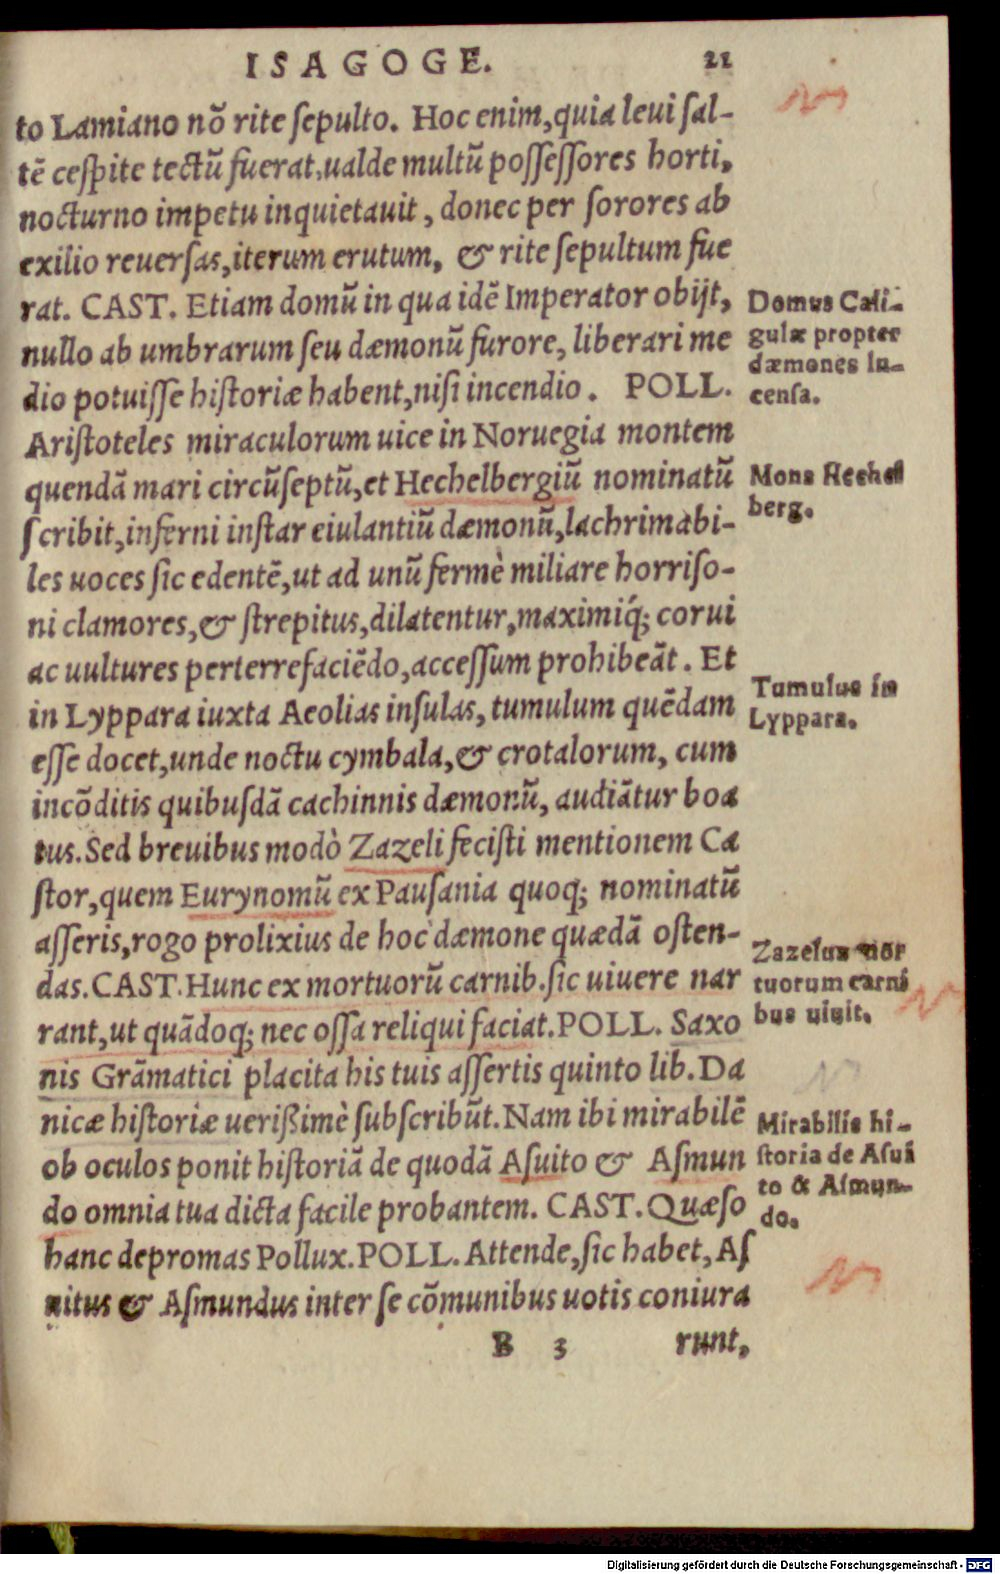 ISAGOGE. 21
to Lamiano nõ rite ſepulto. Hoc enim, quia leui ſal-
tẽ ceſpite tectũ fuerat, ualde multũ poſſeſſores horti,
nocturno impetu inquietauit, donec per ſorores ab
exilio reuerſas, iterum erutum, & rite ſepultum fue
rat. CAST. Etiam domũ in qua idẽ Imperator obijt,
nullo ab umbrarum ſeu dæmonũ furore, liberari me
dio potuiſſe hiſtoriæ habent, niſi incendio. POLL.
Ariſtoteles miraculorum uice in Noruegia montem
quendã mari circũſeptũ, et Hechelbergiũ nominatũ
ſcribit, inferni inſtar eiulantiũ dæmonũ, lachrimabi-
les uoces ſic edentẽ, ut ad unũ fermè miliare horriſo-
ni clamores, & ſtrepitus, dilatentur, maximiq́; corui
ac uultures perterrefaciẽdo, acceſſum prohibeãt. Et
in Lyppara iuxta Aeolias inſulas, tumulum quẽdam
eſſe docet, unde noctu cymbala, & crotalorum, cum
incõditis quibuſdã cachinnis dæmonũ, audiãtur boa
tus. Sed breuibus modò Zazeli feciſti mentionem Ca
ſtor, quem Eurynomũ ex Pauſania quoq; nominatũ
aſſeris, rogo prolixius de hoc dæmone quædã oſten-
das. CAST. Hunc ex mortuorũ carnib. ſic uiuere nar
rant, ut quãdoq; nec oſſa reliqui faciat. POLL. Saxo
nis Grãmatici placita his tuis aſſertis quinto lib. Da
nicæ hiſtoriæ ueriſſimè ſubſcribũt. Nam ibi mirabilẽ
ob oculos ponit hiſtoriã de quodã Aſuito & Aſmun
do omnia tua dicta facile probantem. CAST. Quæſo
hanc depromas Pollux. POLL. Attende, ſic habet, Aſ
uitus & Aſmundus inter ſe cõmunibus uotis coniura
B 3 runt,
Domus Cali-
gulæ propter
dæmones in-
cenſa.
Mons Hechel
berg.
Tumulus in
Lyppara.
Zazelus mor
tuorum carni
bus uiuit.
Mirabilis hi-
ſtoria de Aſui
to & Aſmun-
do.
Digitalisierung gefördert durch die Deutsche Forschungsgemeinschaft - DFG